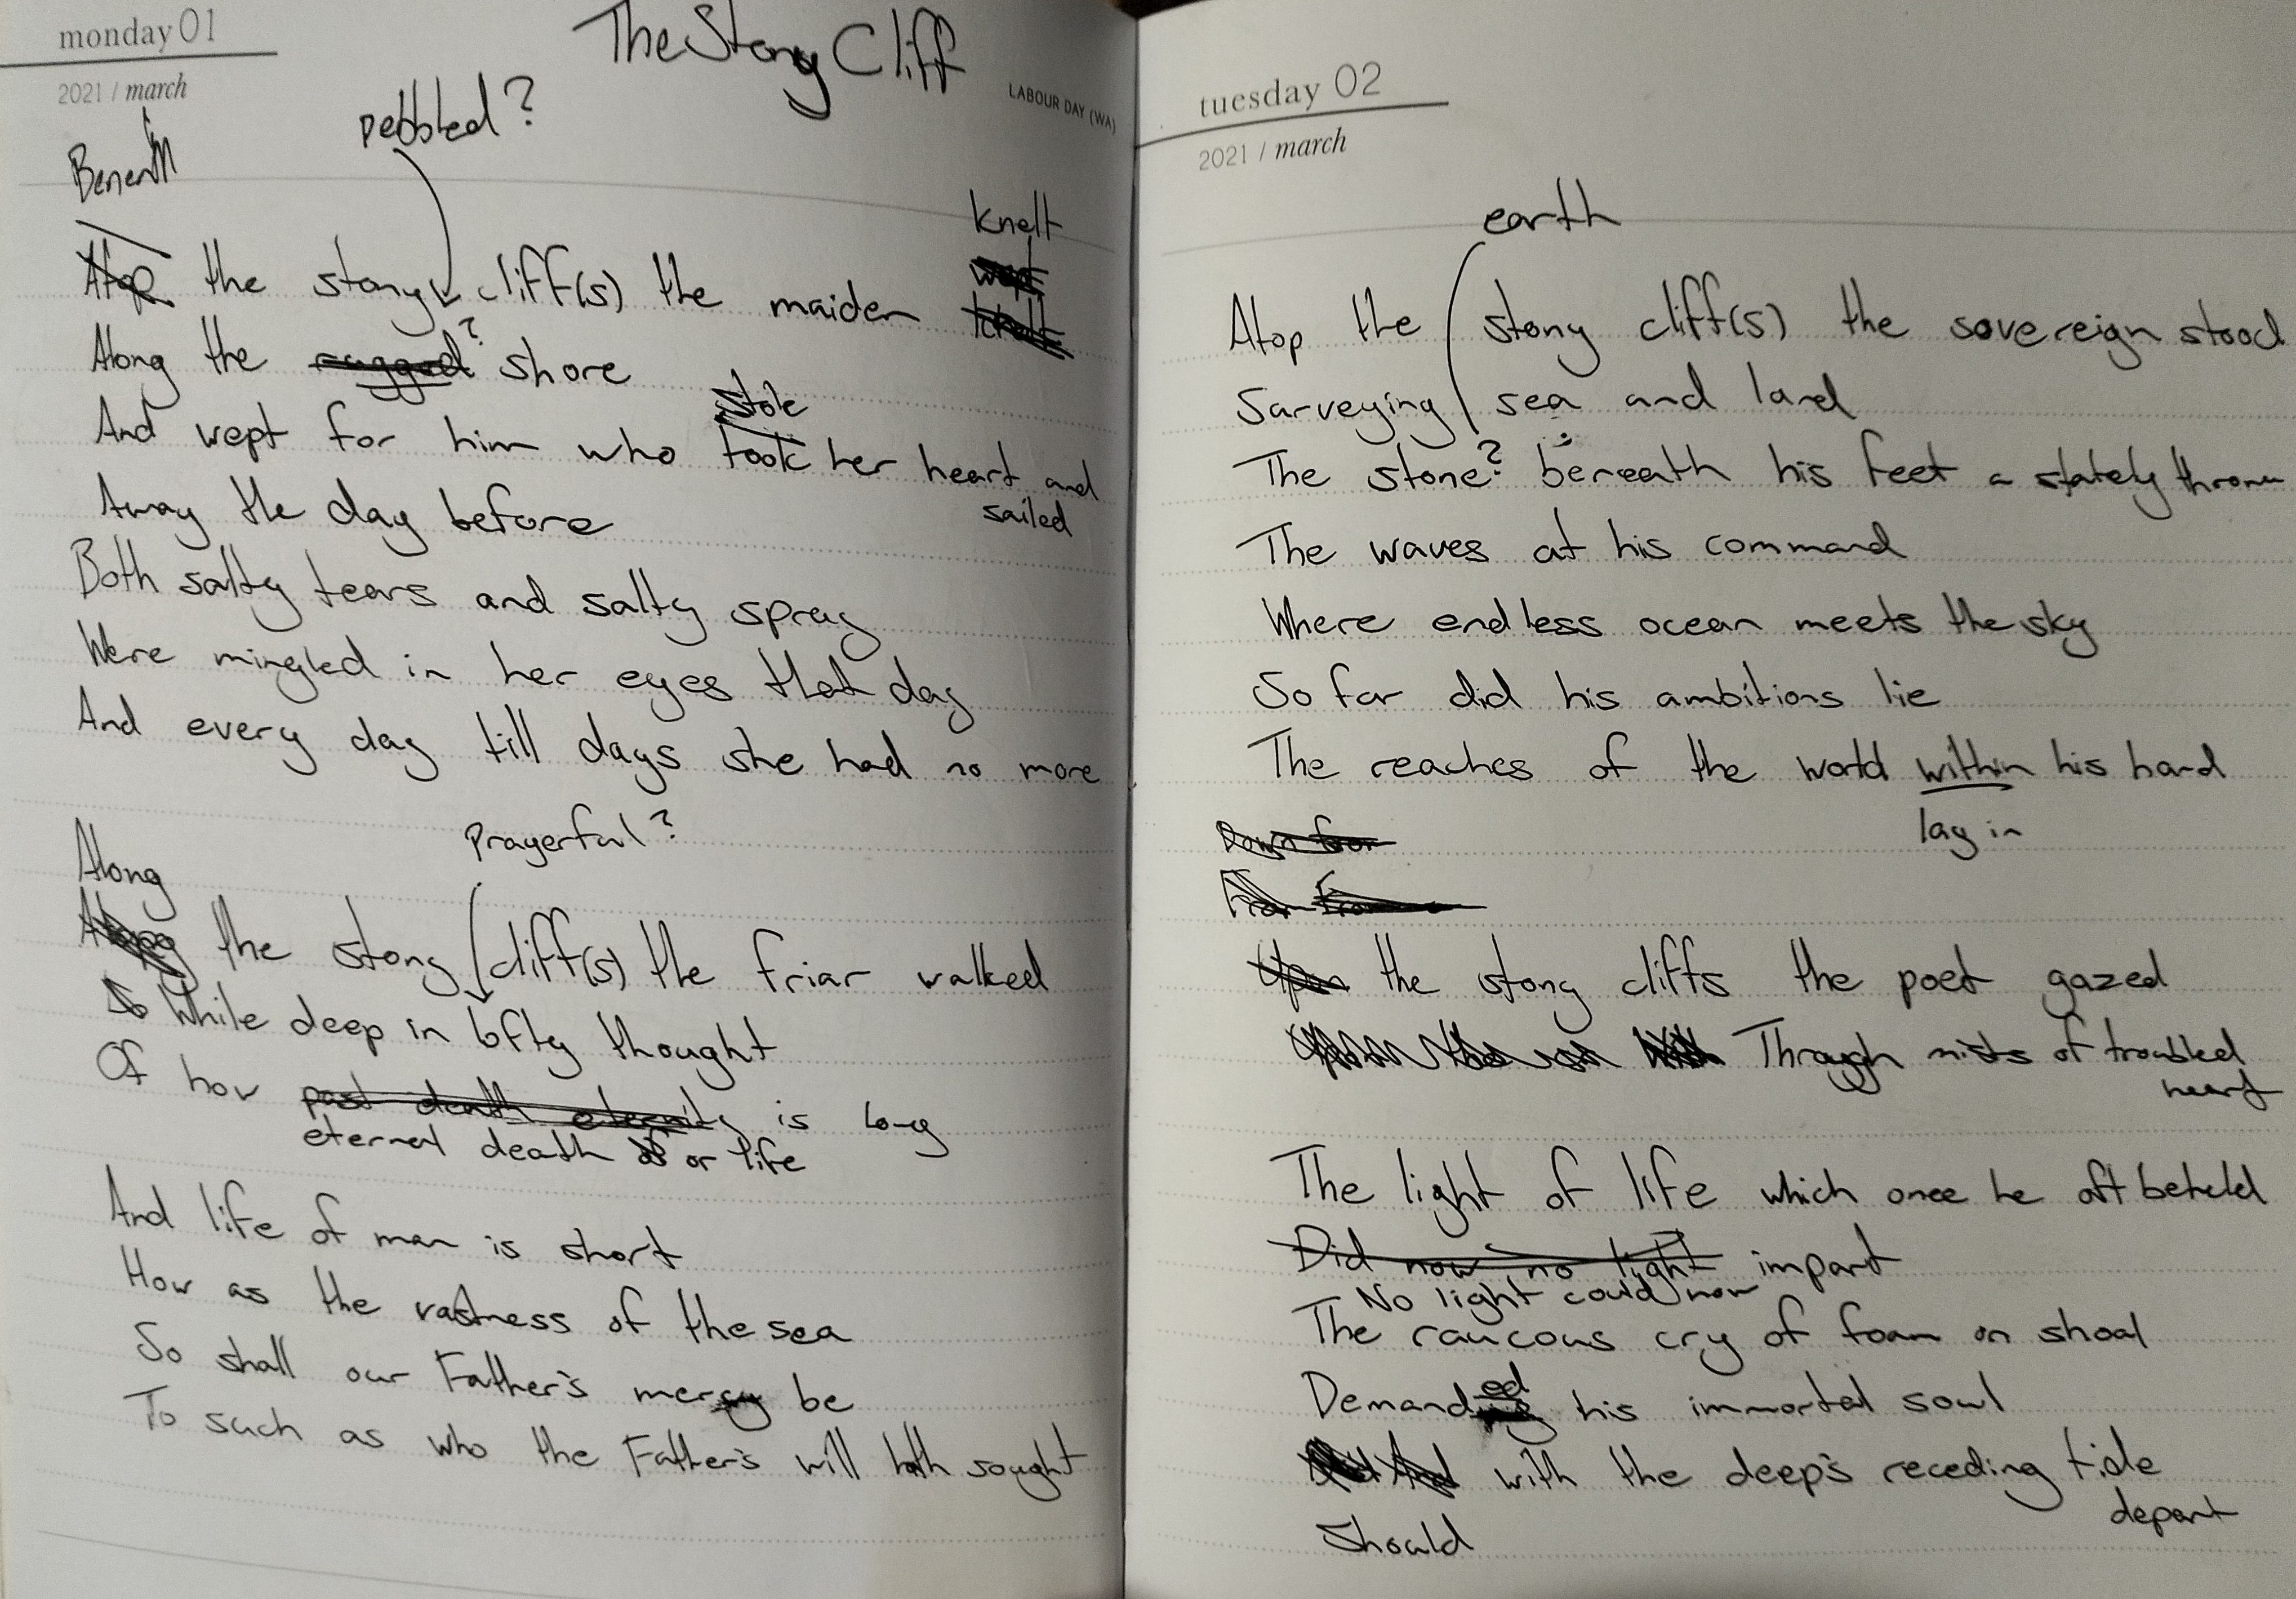 monday 01
2021 / march
The Stony Cliff
LABOUR DAY (WA)
pebbled?
Beneath
knelt
Atop the stony cliff(s) the maiden wept
knelt
Along the rugged? shore
stole
And wept for him who took her heart and
sailed
Away the day before
Both salty tears and salty spray
Were mingled in her eyes that day
And every day till days she had no more
Prayerful?
Along
Along the stony cliff(s) the friar walked
So While deep in lofty thought
Of how past death eternity is long
eternal death or life
And life of man is short
How as the vastness of the sea
So shall our Father's mercy be
To such as who the Father's will hath sought
tuesday 02
2021 / march
earth
Atop the stony cliff(s) the sovereign stood
Surveying sea and land
The stone? beneath his feet a stately throne
The waves at his command
Where endless ocean meets the sky
So far did his ambitions lie
The reaches of the world within his hand
lay in
Down from
From
Upon the stony cliffs the poet gazed
Through mists of troubled
heart
The light of life which once he oft beheld
Did now no light impart
No light could now
The raucous cry of foam on shoal
ed
Demanding his immortal soul
with the deep's receding tide
depart
Should